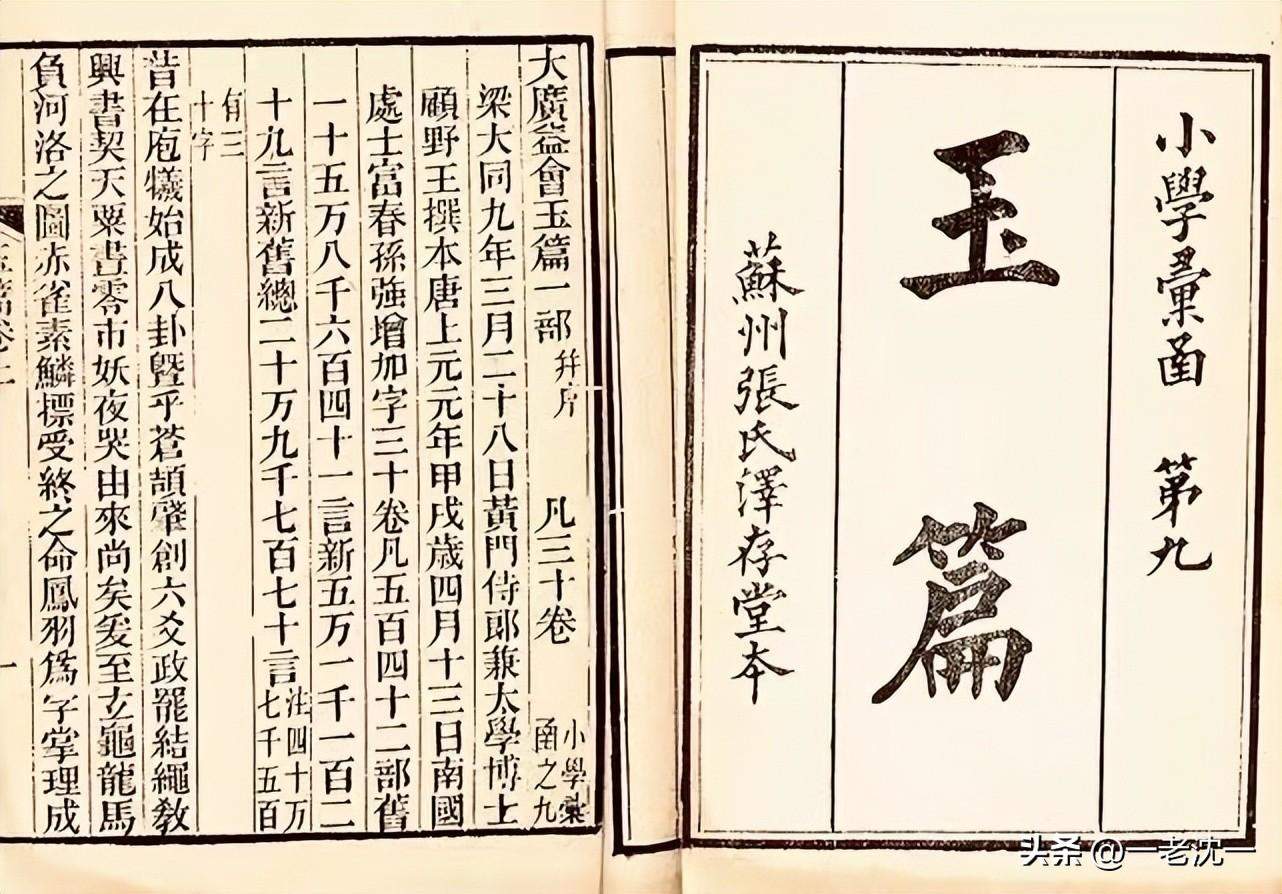 小學彙函　第九
玉篇
蘇州張氏澤存堂本
大廣益會玉篇一部　并序　凡三十卷　小學彙函之九
梁大同九年三月二十八日黃門侍郎兼太學博士
顧野王撰本唐上元元年甲戌歲四月十三日南國
處士富春孫強增加字三十卷凡五百四十二部舊
一十五万八千六百四十一言新五万一千一百二
十九言新舊總二十万九千七百七十言注四十万七千五百
有三十字
昔在庖犧始成八卦暨乎蒼頡肇創六爻政罷結繩教
興書契天粟晝零市妖夜哭由來尚矣爰至玄龜龍馬
負河洛之圖赤雀素鱗摽受終之命鳳羽爲字掌理成
頭条 @一老沈一